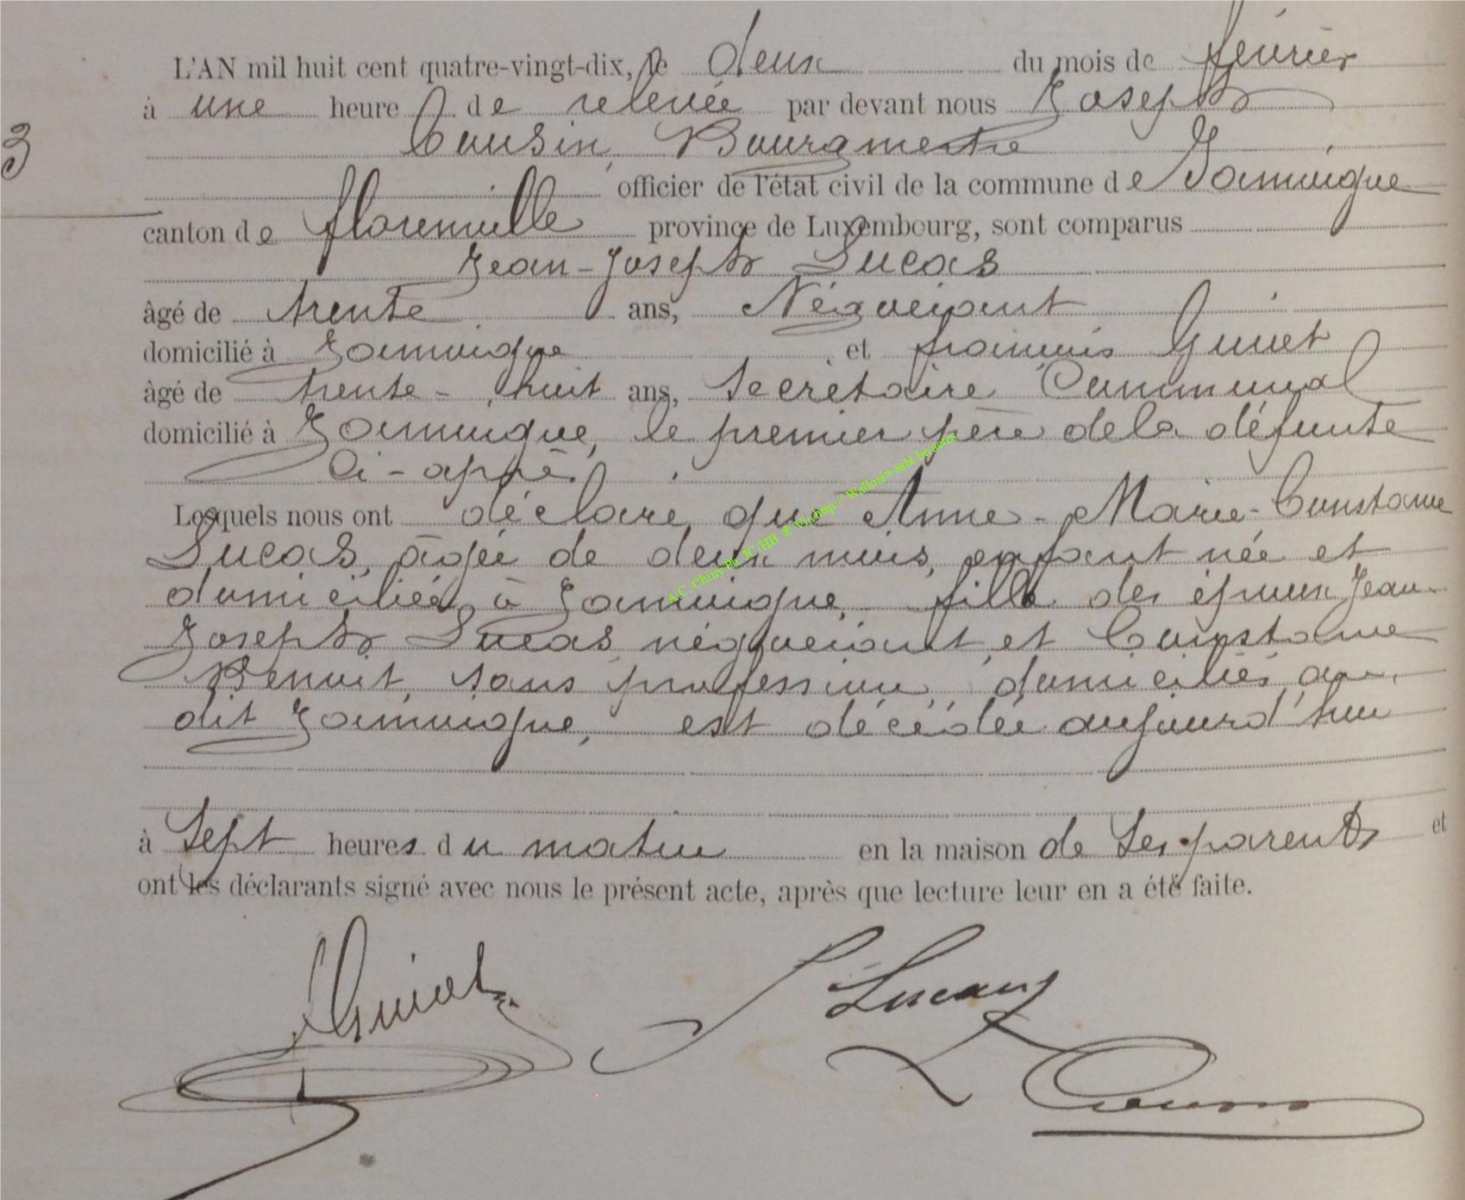 L'AN mil huit cent quatre-vingt-dix, le deux du mois de février
à une heure de relevée par devant nous Joseph
3
Cousin, Bourgmestre
officier de l'état civil de la commune de Jamoigne
canton de florenville province de Luxembourg, sont comparus
Jean-Joseph Lucas
âgé de trente ans, Négociant
domicilié à Jamoigne et françois Guiot
âgé de trente-huit ans, Secrétaire Communal
domicilié à Jamoigne, le premier père de la défunte
Ci-après
Lesquels nous ont déclaré, que Anne-Marie-Constance
Lucas, âgée de deux mois, enfant née et
domiciliée à Jamoigne, fille des époux Jean-
Joseph Lucas, négociant, et Constance
Benoit, sans profession, domiciliés au
dit Jamoigne, est décédée aujourd'hui
à Sept heures du matin en la maison de Ses parents et
ont les déclarants signé avec nous le présent acte, après que lecture leur en a été faite.
Guiot
J Lucas
Cousin